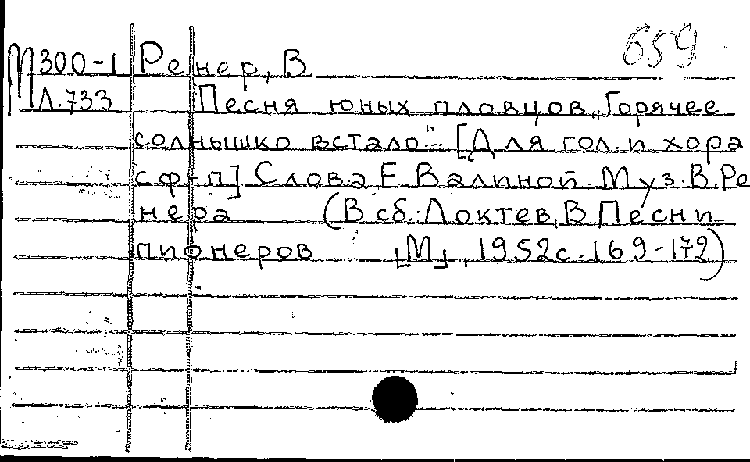 659
М300-1 Ренер, В
Л.733 Песня юных пловцов „Горячее
солнышко встало" [Для гол. и хора
с ф-п] Слова Е. Валиной Муз. В. Ре
нера (В сб.: Локтев, В Песни
пионеров [М], 1952 с. 169-172)